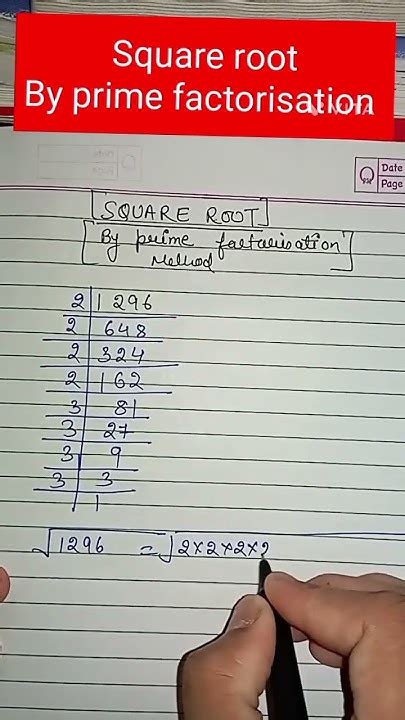 Square root
By prime factorisation
Date
Page
SQUARE ROOT
By prime factorisation
Method
2 1296
2 648
2 324
2 162
3 81
3 27
3 9
3 3
1
√1296 = √2×2×2×2